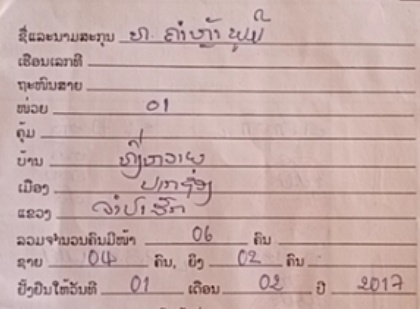 ຊື່ແລະນາມສະກຸນ ທ. ຄຳຫຼ້າ
ເຮືອນເລກທີ
ຖະໜົນສາຍ
ໜ່ວຍ 01
ຄຸ້ມ
ບ້ານ
ເມືອງ ປາກຊ່ອງ
ແຂວງ ຈຳປາສັກ
ລວມຈຳນວນຄົນມີໜ້າ 06 ຄົນ
ຊາຍ 04 ຄົນ, ຍິງ 02 ຄົນ
ຢັ້ງຢືນໃຫ້ວັນທີ 01 ເດືອນ 02 ປີ 2017